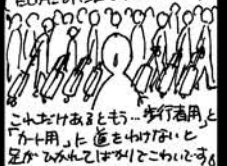 これだけあるともう…「歩行者用」と
「カート用」に道をわけないと
足がひかれてばかりでこわいです。